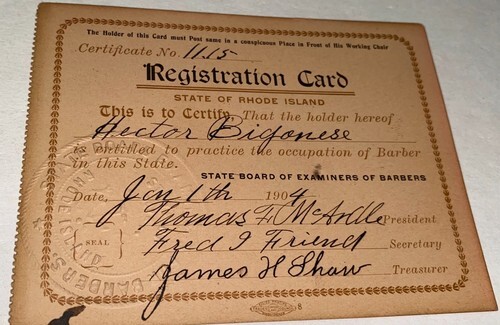 The Holder of this Card must Post same in a conspicuous Place in Front of His Working Chair
Certificate No. 1115
Registration Card
STATE OF RHODE ISLAND
This is to Certify, That the holder hereof
Hector Bigonese
is entitled to practice the occupation of Barber
in this State.
STATE BOARD OF EXAMINERS OF BARBERS
Date, Jan 1th 1904
Thomas F. McArdle President
Fred J Friend Secretary
James H Shaw Treasurer
SEAL
8